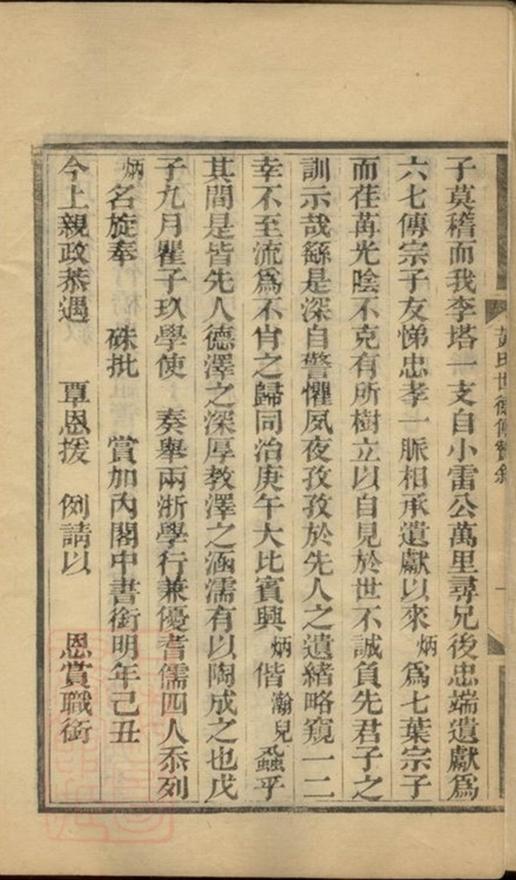 黃氏世德傳贊叙
子莫稽而我李塔一支自小雷公萬里尋兄後忠端遺獻爲
六七傳宗子友悌忠孝一脈相承遺獻以來炳爲七葉宗子
而荏苒光陰不克有所樹立以自見於世不誠負先君子之
訓示哉繇是深自警懼夙夜孜孜於先人之遺緒略窺一二
幸不至流爲不肖之歸同治庚午大比賓興炳偕瀚兒蝨乎
其間是皆先人德澤之深厚教澤之涵濡有以陶成之也戊
子九月瞿子玖學使 奏舉兩浙學行兼優耆儒四人忝列
炳名旋奉 硃批 賞加內閣中書銜明年己丑
今上親政恭遇 覃恩援 例請以 恩賞職銜